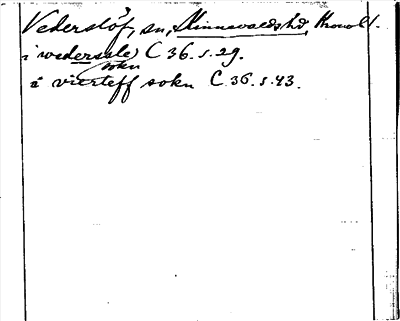 Vederslöf, sn, Kinnevalds hd, Kronobl.
i wedersale) C 36. s. 29.
soku
i vierteff sokn C. 36. s. 43.